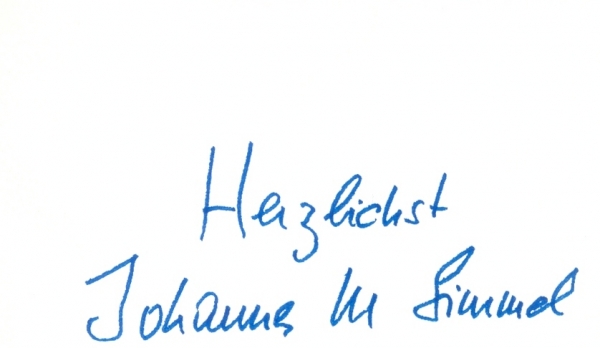 Herzlichst
Johannes M Simmel